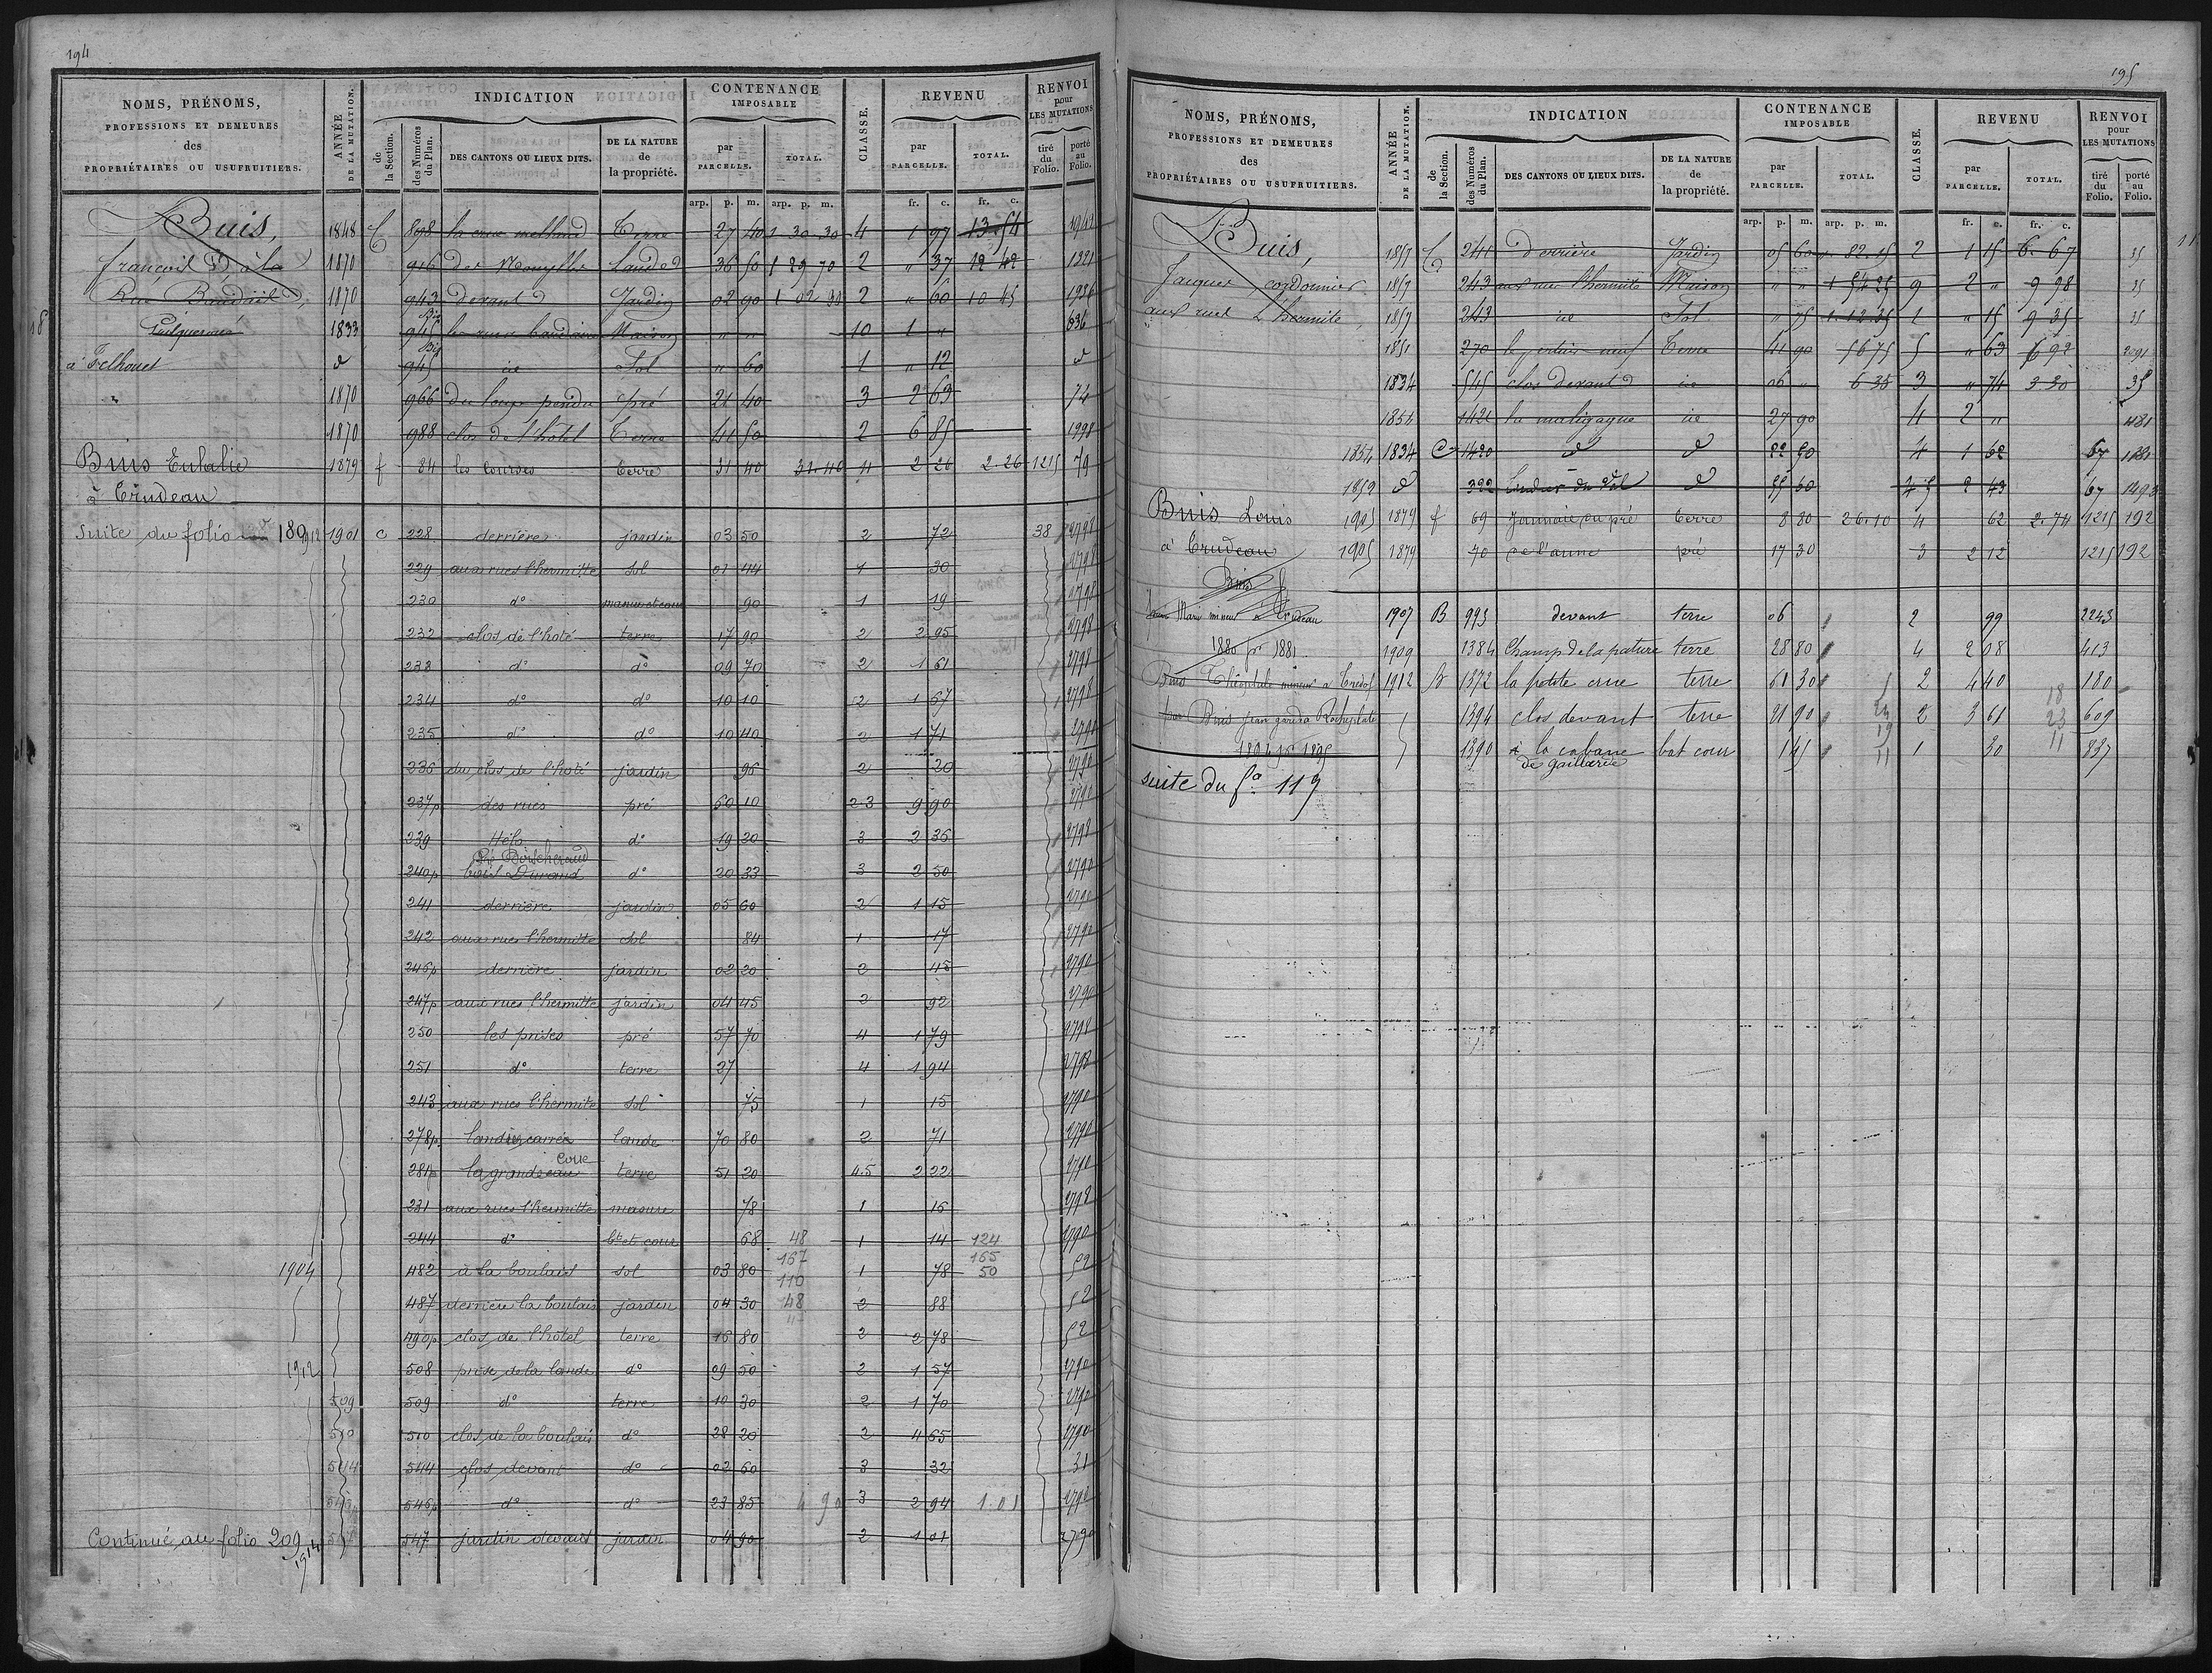 194
NOMS, PRÉNOMS, PROFESSIONS ET DEMEURES des PROPRIÉTAIRES OU USUFRUITIERS.
ANNÉE DE LA MUTATION.
INDICATION
de la Section.
des Numéros du Plan.
DES CANTONS OU LIEUX DITS.
DE LA NATURE de la propriété.
CONTENANCE IMPOSABLE
par PARCELLE.
TOTAL.
CLASSE.
REVENU
par PARCELLE.
TOTAL.
RENVOI pour LES MUTATIONS
tiré du Folio.
porté au Folio.
arp. p. m. arp. p. m. fr. c. fr. c.
Buis, 1848 898 Terre 27 40 1 30 30 4 1 97 13 54
françois 1870 916 Landes 36 50 1 29 70 2 " 37 12 42 1321
1870 943 devant Jardin 02 90 1 02 90 2 " 60 10 45
1833 945 Bis Maison " " 10 1 " 636
à Felhouet d 945 Bis ice Sol " 60 1 " 12 d
1870 966 du loup pendu pré 21 40 3 2 69 74
1870 988 clos de l'hôtel Terre 41 50 2 6 85 1998
Buis Eulalie 1879 f 84 les courses terre 31 40 31.40 4 2 26 2.26 1215 79
à Trudeau
Suite du folio 189 1912 1901 c 228 derrières jardin 03 50 2 72 38 2798
229 aux rues l'hermitte sol 01 44 1 30 2798
230 d° masure et cour 90 1 19 2798
232 clos de l'hoté terre 17 90 2 2 95 2798
233 d° d° 09 70 2 1 61 2798
234 d° d° 10 10 2 1 67 2798
235 d° d° 10 40 2 1 71 2790
236 du clos de l'hoté jardin 96 2 20 2790
237p des rues pré 60 10 2 3 9 90 2790
239 Hélo d° 19 20 3 2 36 2798
Pré Boischeraud
240p Durand d° 20 33 3 2 50 2790
241 derrière jardin 05 60 2 1 15 2790
242 aux rues l'hermitte sol 84 1 17 2790
246p derrière jardin 02 20 2 45 2790
247p aux rues l'hermitte jardin 04 45 2 92 2790
250 les prises pré 57 70 4 1 79 2798
251 d° terre 27 4 1 94 2798
243 aux rues l'hermite sol 75 1 15 2790
278p landier carrée lande 70 80 2 71 2790
281p la grande terre 51 20 4.5 2 22 2790
231 aux rues l'hermitte masure 78 1 16 2798
244 d° bt et cour 68 48 1 14 124 2790
167 165
1904 482 à la boulais sol 03 80 110 1 78 50 52
487 derrière la boulais jardin 04 30 48 2 88 52
490p clos de l'hôtel terre 16 80 2 2 78 52
1912 508 prise de la lande d° 09 50 2 1 57 2790
509 509 d° terre 10 30 2 1 70 2790
510 510 clos de la boulais d° 28 20 2 4 65 2790
544 544 clos devant d° 02 60 3 32 31
546p d° d° 23 85 4 90 3 2 94 1.01 2790
Continué au folio 209 1914 547 jardin devant jardin 04 90 2 1 01 2790
195
NOMS, PRÉNOMS, PROFESSIONS ET DEMEURES des PROPRIÉTAIRES OU USUFRUITIERS.
ANNÉE DE LA MUTATION.
INDICATION
de la Section.
des Numéros du Plan.
DES CANTONS OU LIEUX DITS.
DE LA NATURE de la propriété.
CONTENANCE IMPOSABLE
par PARCELLE.
TOTAL.
CLASSE.
REVENU
par PARCELLE.
TOTAL.
RENVOI pour LES MUTATIONS
tiré du Folio.
porté au Folio.
arp. p. m. arp. p. m. fr. c. fr. c.
Buis, 1857 241 derrière Jardin 05 60 82.15 2 1 15 6.67 35
Jacques cordonnier 1857 243 aux rues l'hermite Maison " " 1 54 25 9 2 " 9 98 35
aux rues L'hermite, 1857 243 ice Sol " 75 1.12.35 1 " 15 9 35 35
1851 270 Terre 41 90 56 75 5 " 63 6 92 2091
1834 545 clos devant ice 06 " 6 35 3 " 74 3.30 35
1854 1421 la maligagne ice 27 90 4 2 " 481
1854 1834 C 1420 d d 22 50 4 1 62 67 1181
1859 d 322 d 55 60 4 5 2 43 67 1493
Buis Louis 1905 1879 f 69 terre 8 80 26.10 4 62 2.74 1215 192
à Trudeau 1905 1879 70 de l'aune pré 17 30 3 2 12 1215 192
Buis
Marie mineur à Trudeau 1907 B 993 devant terre 06 2 99 2243
1880 pr 1881 1909 1384 Champ de la pature terre 28 80 4 2 08 413
Buis Théophile mineur à 1912 B 1372 la petite crue terre 61 30 2 4 40 180
par Buis jean garde à 1394 clos devant terre 21 90 2 3 61 609
1894 pr 1895 1390 à la cabane de gaillardie bat cour 1 45 1 30 837
suite du f° 119